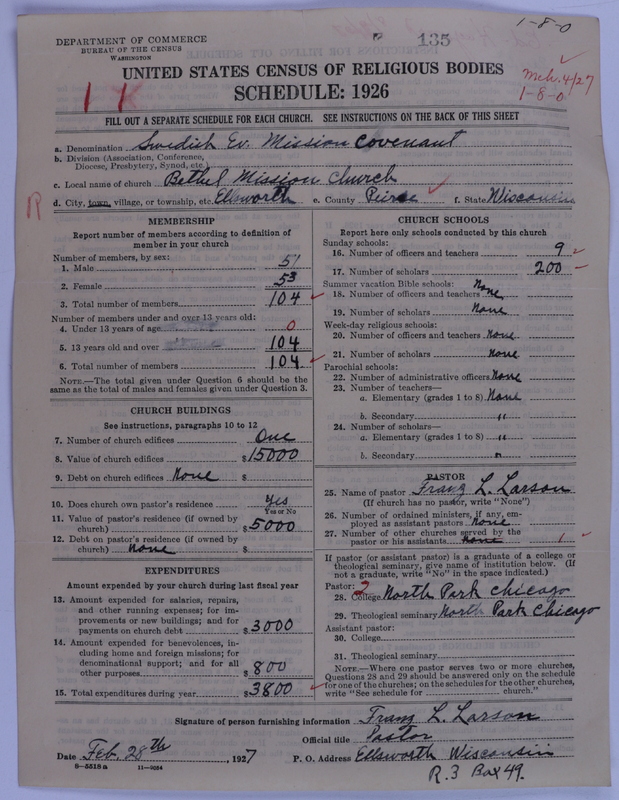 1-8-0
DEPARTMENT OF COMMERCE
BUREAU OF THE CENSUS
WASHINGTON
135
UNITED STATES CENSUS OF RELIGIOUS BODIES
SCHEDULE: 1926
Mch. 4/27
1-8-0
FILL OUT A SEPARATE SCHEDULE FOR EACH CHURCH. SEE INSTRUCTIONS ON THE BACK OF THIS SHEET
a. Denomination Swedish Ev. Mission Covenant
b. Division (Association, Conference,
Diocese, Presbytery, Synod, etc.)
c. Local name of church Bethel Mission Church
R
d. City, town, village, or township, etc. Ellsworth e. County Pierce f. State Wisconsin
MEMBERSHIP
Report number of members according to definition of
member in your church
Number of members, by sex:
1. Male 51
2. Female 53
3. Total number of members 104
Number of members under and over 13 years old:
4. Under 13 years of age 0
5. 13 years old and over 104
6. Total number of members 104
NOTE.—The total given under Question 6 should be
same as the total of males and females given under Question 3.
CHURCH BUILDINGS
See instructions, paragraphs 10 to 12
7. Number of church edifices One
8. Value of church edifices $15000
9. Debt on church edifices None $
10. Does church own pastor's residence Yes
Yes or No
11. Value of pastor's residence (if owned by
church) $5000
12. Debt on pastor's residence (if owned by
church) none $
EXPENDITURES
Amount expended by your church during last fiscal year
13. Amount expended for salaries, repairs,
and other running expenses; for im-
provements or new buildings; and for
payments on church debt $3000
14. Amount expended for benevolences, in-
cluding home and foreign missions; for
denominational support; and for all
other purposes $800
15. Total expenditures during year $3800
CHURCH SCHOOLS
Report here only schools conducted by this church
Sunday schools:
16. Number of officers and teachers 9
17. Number of scholars 200
Summer vacation Bible schools: None
18. Number of officers and teachers None
19. Number of scholars None
Week-day religious schools:
20. Number of officers and teachers None
21. Number of scholars None
Parochial schools:
22. Number of administrative officers None
23. Number of teachers—
a. Elementary (grades 1 to 8) None
b. Secondary "
24. Number of scholars—
a. Elementary (grades 1 to 8) "
b. Secondary "
PASTOR
25. Name of pastor Franz L. Larson
(If church has no pastor, write "None")
26. Number of ordained ministers, if any, em-
ployed as assistant pastors None
27. Number of other churches served by the
pastor or his assistants None 1
If pastor (or assistant pastor) is a graduate of a college or
theological seminary, give name of institution below. (If
not a graduate, write "No" in the space indicated.)
Pastor: 2
28. College North Park Chicago
29. Theological seminary North Park Chicago
Assistant pastor:
30. College
31. Theological seminary
NOTE.—Where one pastor serves two or more churches,
Questions 28 and 29 should be answered only on the schedule
for one of the churches; on the schedules for the other churches,
write "See schedule for church."
Signature of person furnishing information Franz L. Larson
Official title Pastor
Date Feb. 28th, 1927 P. O. Address Ellsworth Wisconsin
8-5515a 11-9054
R. 3 Box 49.